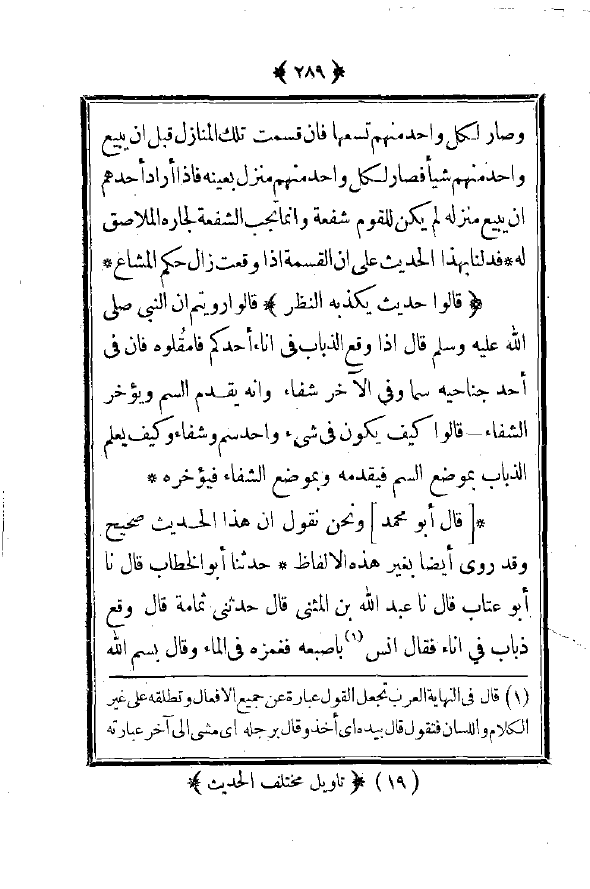 ﴿ ٢٨٩ ﴾
وصار لكل واحد منهم تسعها فان قسمت تلك المنازل قبل ان يبيع
واحد منهم شيأ فصار لكل واحد منهم منزل بعينه فاذا أراد أحدهم
ان يبيع منزله لم يكن للقوم شفعة وانما تجب الشفعة لجاره الملاصق
له * فدلنا بهذا الحديث على ان القسمة اذا وقعت زال حكم المشاع *
﴿ قالوا حديث يكذبه النظر ﴾ قالوا رويتم ان النبي صلى
الله عليه وسلم قال اذا وقع الذباب فى اناء أحدكم فامقُلوه فان فى
أحد جناحيه سما وفي الآخر شفاء وانه يقدم السم ويؤخر
الشفاء – قالوا كيف يكون فى شيء واحد سم وشفاء وكيف يعلم
الذباب بموضع السم فيقدمه وبموضع الشفاء فيؤخره *
* [ قال أبو محمد ] ونحن نقول ان هذا الحديث صحيح
وقد روى أيضا بغير هذه الالفاظ * حدثنا أبو الخطاب قال نا
أبو عتاب قال نا عبد الله بن المثنى قال حدثنى ثمامة قال وقع
ذباب في اناء فقال انس (١) باصبعه فغمزه فى الماء وقال بسم الله
(١) قال فى النهاية العرب تجعل القول عبارة عن جميع الافعال وتطلقه على غير
الكلام واللسان فتقول قال بيده اى أخذ وقال برجله اى مشى الى آخر عبارته
(١٩) ﴿ تاويل مختلف الحديث ﴾